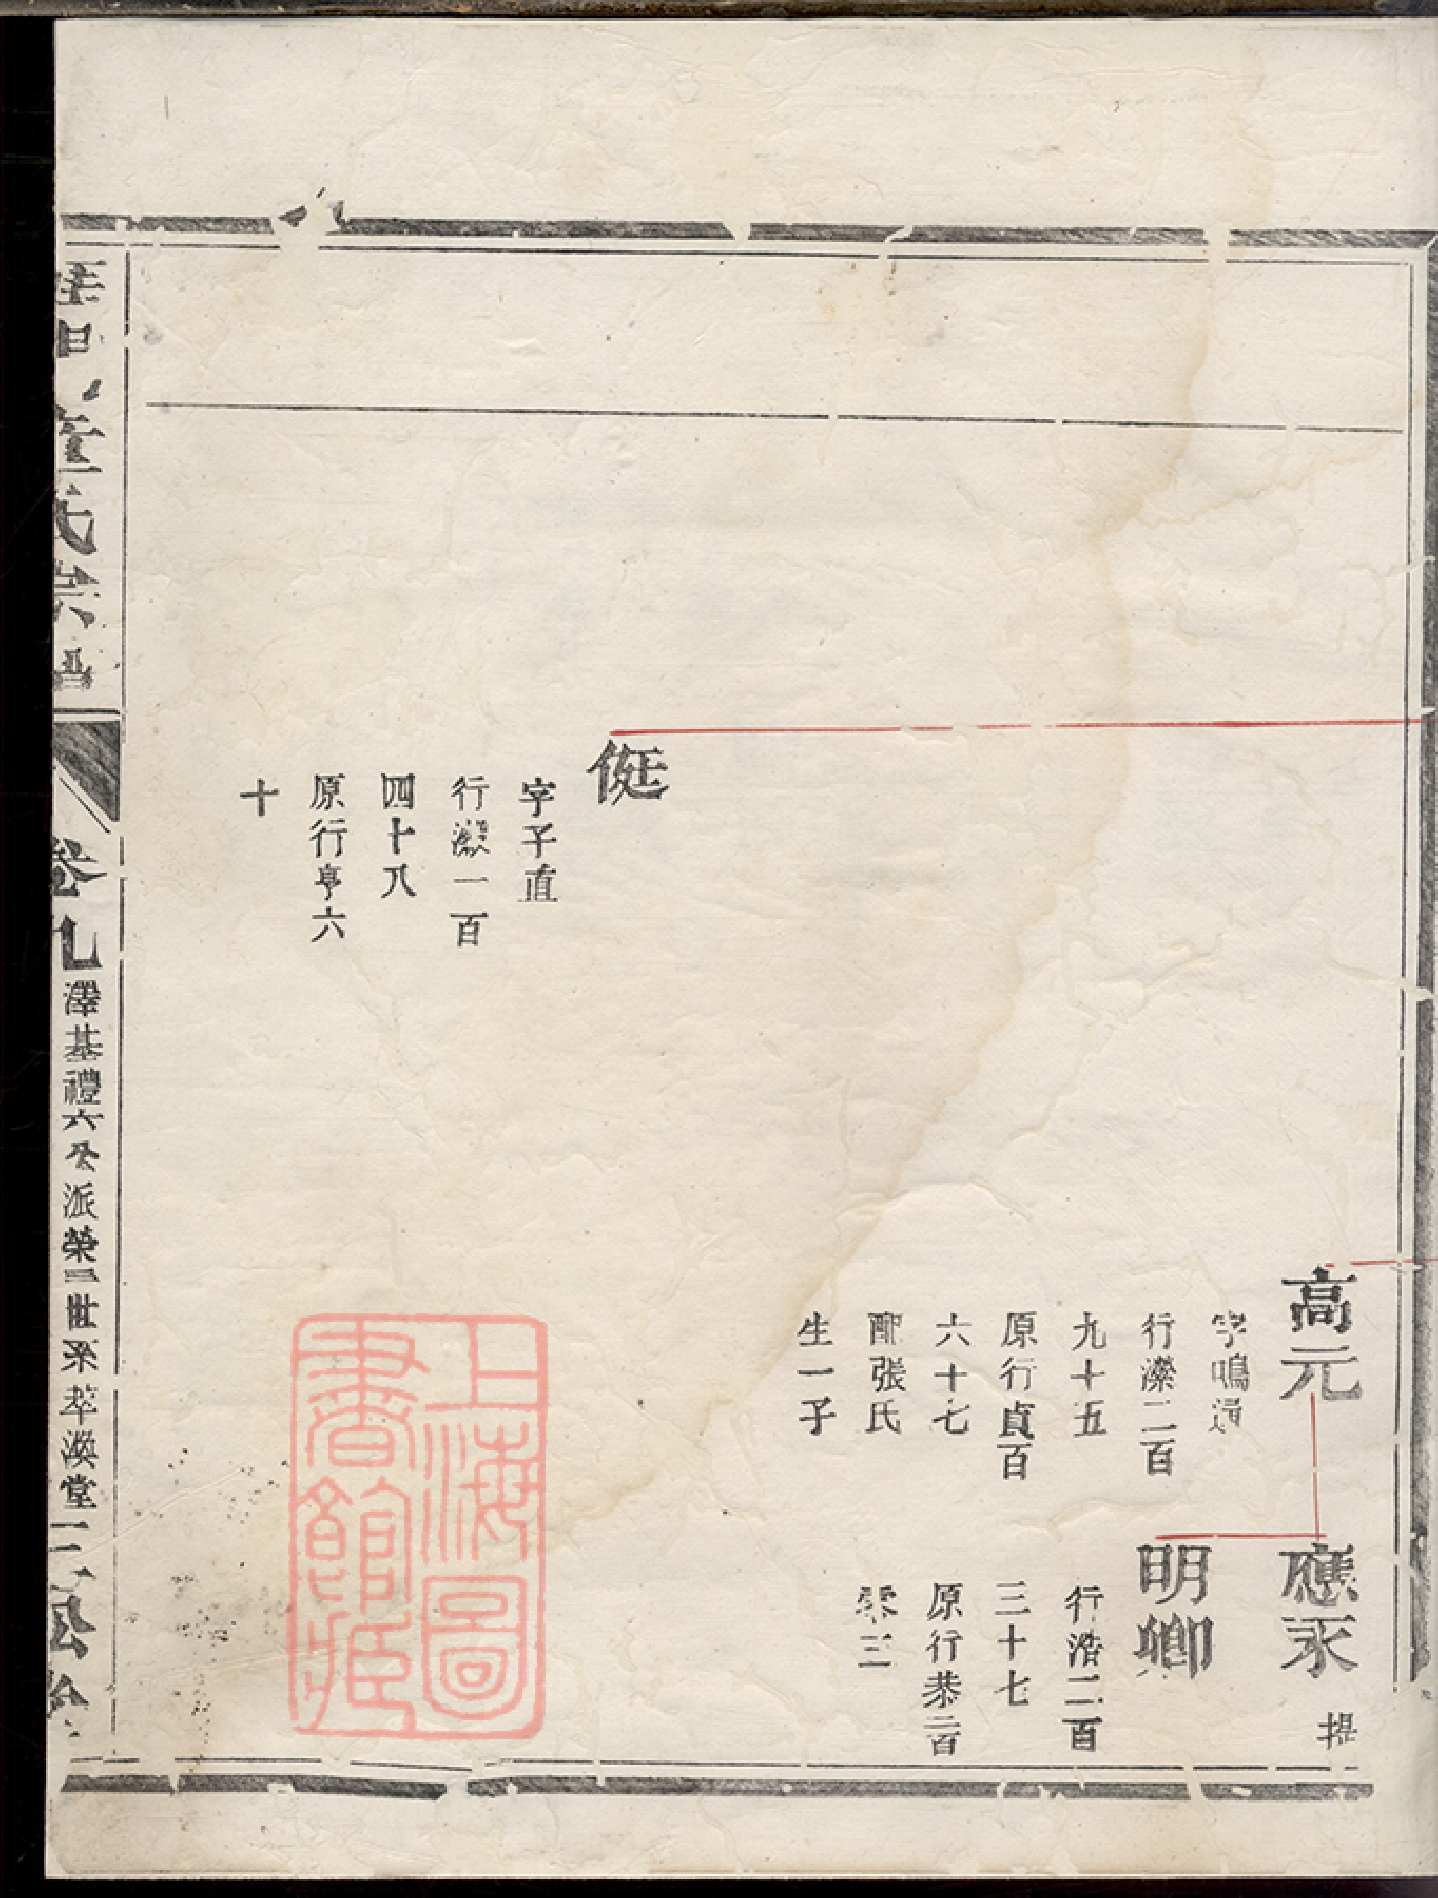 高元
字鳴
行濼二百
九十五
原行貞百
六十七
配張氏
生一子
應承
提
明卿
行濟二百
三十七
原行恭二百
三
侹
字子直
行一百
四十八
原行亨六
十
氏宗
卷九
澤基禮六公派榮二世系
萃渙堂
上海圖
書館藏